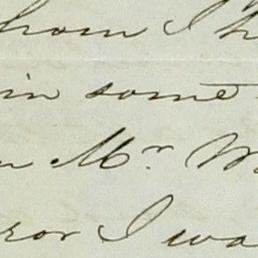 whom I h
in some
Mr W
ror I wa